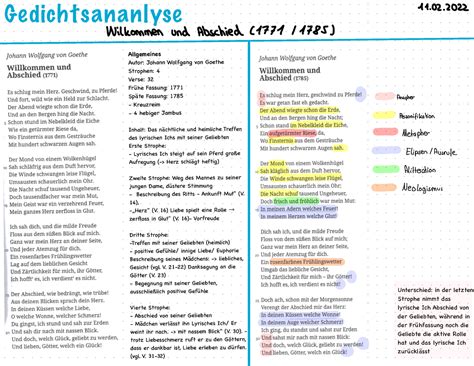 Gedichtsananlyse
11.02.2022
Willkommen und Abschied (1771 / 1785)
Johann Wolfgang von Goethe
Willkommen und
Abschied (1771)
Es schlug mein Herz. Geschwind, zu Pferde!
Und fort, wild wie ein Held zur Schlacht.
Der Abend wiegte schon die Erde,
Und an den Bergen hing die Nacht.
Schon stund im Nebelkleid die Eiche
Wie ein getürmter Riese da,
Wo Finsternis aus dem Gesträuche
Mit hundert schwarzen Augen sah.
Der Mond von einem Wolkenhügel
Sah schläfrig aus dem Duft hervor,
Die Winde schwangen leise Flügel,
Umsausten schauerlich mein Ohr.
Die Nacht schuf tausend Ungeheuer,
Doch tausendfacher war mein Mut,
Mein Geist war ein verzehrend Feuer,
Mein ganzes Herz zerfloss in Glut.
Ich sah dich, und die milde Freude
Floss aus dem süßen Blick auf mich.
Ganz war mein Herz an deiner Seite,
Und jeder Atemzug für dich.
Ein rosenfarbes Frühlingswetter
Lag auf dem lieblichen Gesicht
Und Zärtlichkeit für mich, ihr Götter,
Ich hofft' es, ich verdient' es nicht.
Der Abschied, wie bedrängt, wie trübe!
Aus deinen Blicken sprach dein Herz.
In deinen Küssen welche Liebe,
O welche Wonne, welcher Schmerz!
Du gingst, ich stund und sah zur Erden
Und sah dir nach mit nassem Blick.
Und doch, welch Glück, geliebt zu werden,
Und lieben, Götter, welch ein Glück!
Allgemeines
Autor: Johann Wolfgang von Goethe
Strophen: 4
Verse: 32
Frühe Fassung: 1771
Späte Fassung: 1785
- Kreuzreim
- 4 hebiger Jambus
Inhalt: Das nächtliche und heimliche Treffen
des lyrischen Ichs mit seiner Geliebten
Erste Strophe:
- Lyrisches Ich steigt auf sein Pferd große
Aufregung (-> Herz schlägt heftig)
Zweite Strophe: Weg des Mannes zu seiner
jungen Dame, düstere Stimmung
- Beschreibung des Ritts - Ankunft Mut" (V.
14).
-„Herz" (V. 16) Liebe spielt eine Rolle ->
zerfloss in Glut" (V. 16)- Vorfreude
Dritte Strophe:
-Treffen mit seiner Geliebten (heimlich)
- positive Gefühle/ innige Liebe/ Euphorie
Beschreibung der Menschlichkeit: -> liebliches,
Gesicht (vgl. V. 21-22) Danksagung an die
Götter (V. 23)
- Begegnung mit seiner Geliebten,
ausschließlich positive Gefühle
Vierte Strophe:
- Abschied von seiner Geliebten
- Mädchen verlässt ihn Lyrisches Ich/ Er
weint ihr nach. -> mit nassem Blick" (V. 30).
- trotz Liebesschmerz ruft er zu den Göttern,
dass er dankbar ist, Liebe erleben zu dürfen.
(vgl. V. 31-32)
Johann Wolfgang von Goethe
Willkommen und
Abschied (1785)
Es schlug mein Herz, geschwind zu Pferde!
Es war getan fast eh gedacht.
Der Abend wiegte schon die Erde,
Und an den Bergen hing die Nacht;
Schon stand im Nebelkleid die Eiche,
Ein aufgetürmter Riese, da,
Wo Finsternis aus dem Gesträuche
Mit hundert schwarzen Augen sah.
Der Mond von einem Wolkenhügel
Sah kläglich aus dem Duft hervor,
Die Winde schwangen leise Flügel,
Umsausten schauerlich mein Ohr;
Die Nacht schuf tausend Ungeheuer,
Doch frisch und fröhlich war mein Mut:
In meinen Adern welches Feuer!
In meinem Herzen welche Glut!
Dich sah ich, und die milde Freude
Floss von dem süßen Blick auf mich;
Ganz war mein Herz an deiner Seite
Und jeder Atemzug für dich.
Ein rosenfarbnes Frühlingswetter
Umgab das liebliche Gesicht,
Und Zärtlichkeit für mich - ihr Götter!
Ich hofft es, ich verdient es nicht!
Doch ach, schon mit der Morgensonne
Verengt der Abschied mir das Herz:
In deinen Küssen welche Wonne!
In deinem Auge welcher Schmerz!
Ich ging, du standst und sahst zur Erden,
Und sahst mir nach mit nassem Blick:
Und doch, welch Glück, geliebt zu werden!
Und lieben, Götter, welch ein Glück!
Anapher
Personifikation
Metapher
Neologismus
Unterschied: in der letzten
Strophe nimmt das
lyrische Ich Abschied von
der Geliebten, während in
der Frühfassung noch die
Geliebte die aktive Rolle
hat und das lyrische Ich
zurücklässt